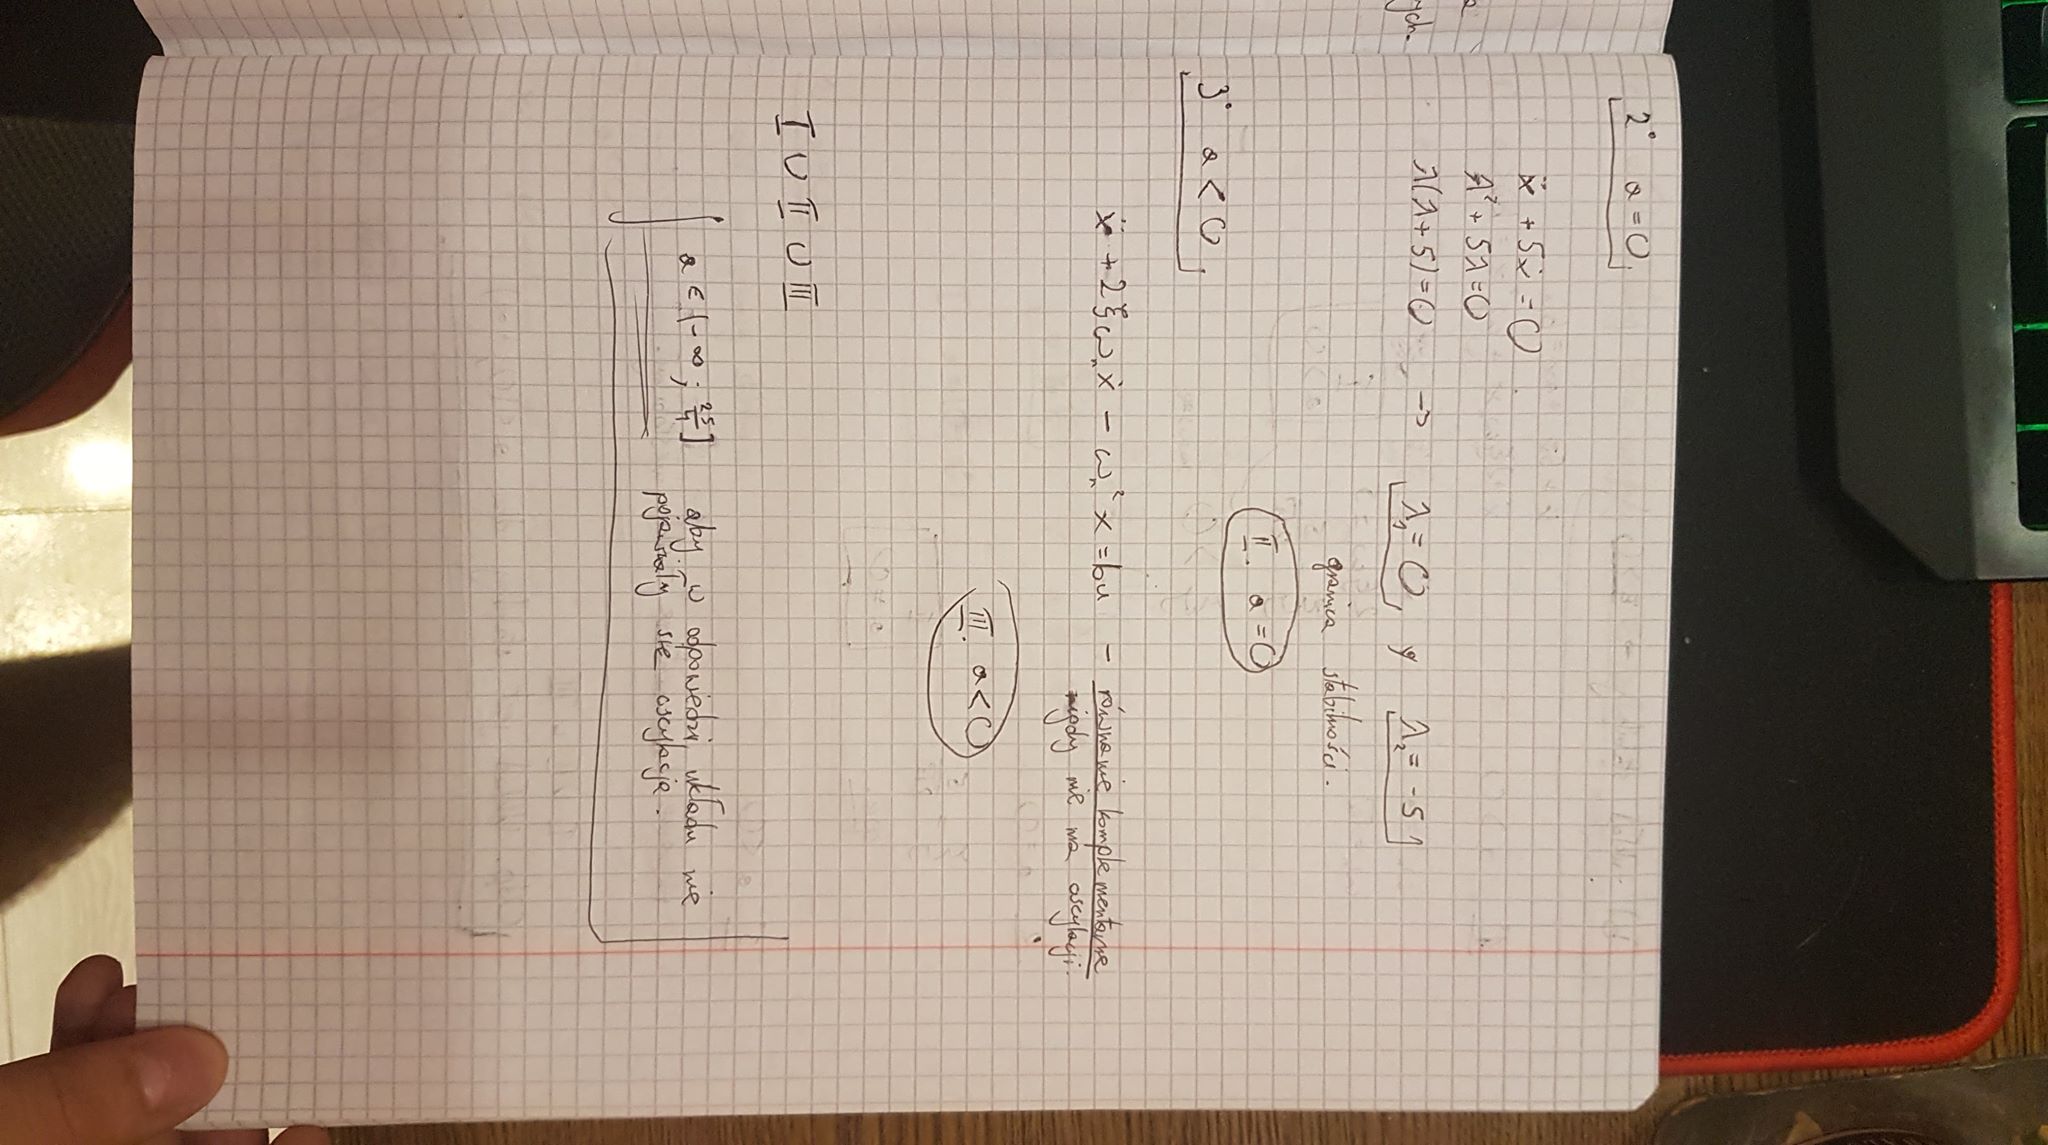 2° a = 0
ẍ + 5ẋ = 0
λ² + 5λ = 0
λ(λ+5) = 0 → λ₁ = 0 λ₂ = -5
granica stabilności.
II. a = 0
3° a < 0
ẍ + 2ξωₙẋ - ωₙ²x = bu - równanie komplementarne
nigdy nie ma oscylacji.
III. a < 0
I ∪ II ∪ III
a ∈ (-∞; 25/4] aby w odpowiedzi układu nie
pojawiały się oscylacje.
ych.